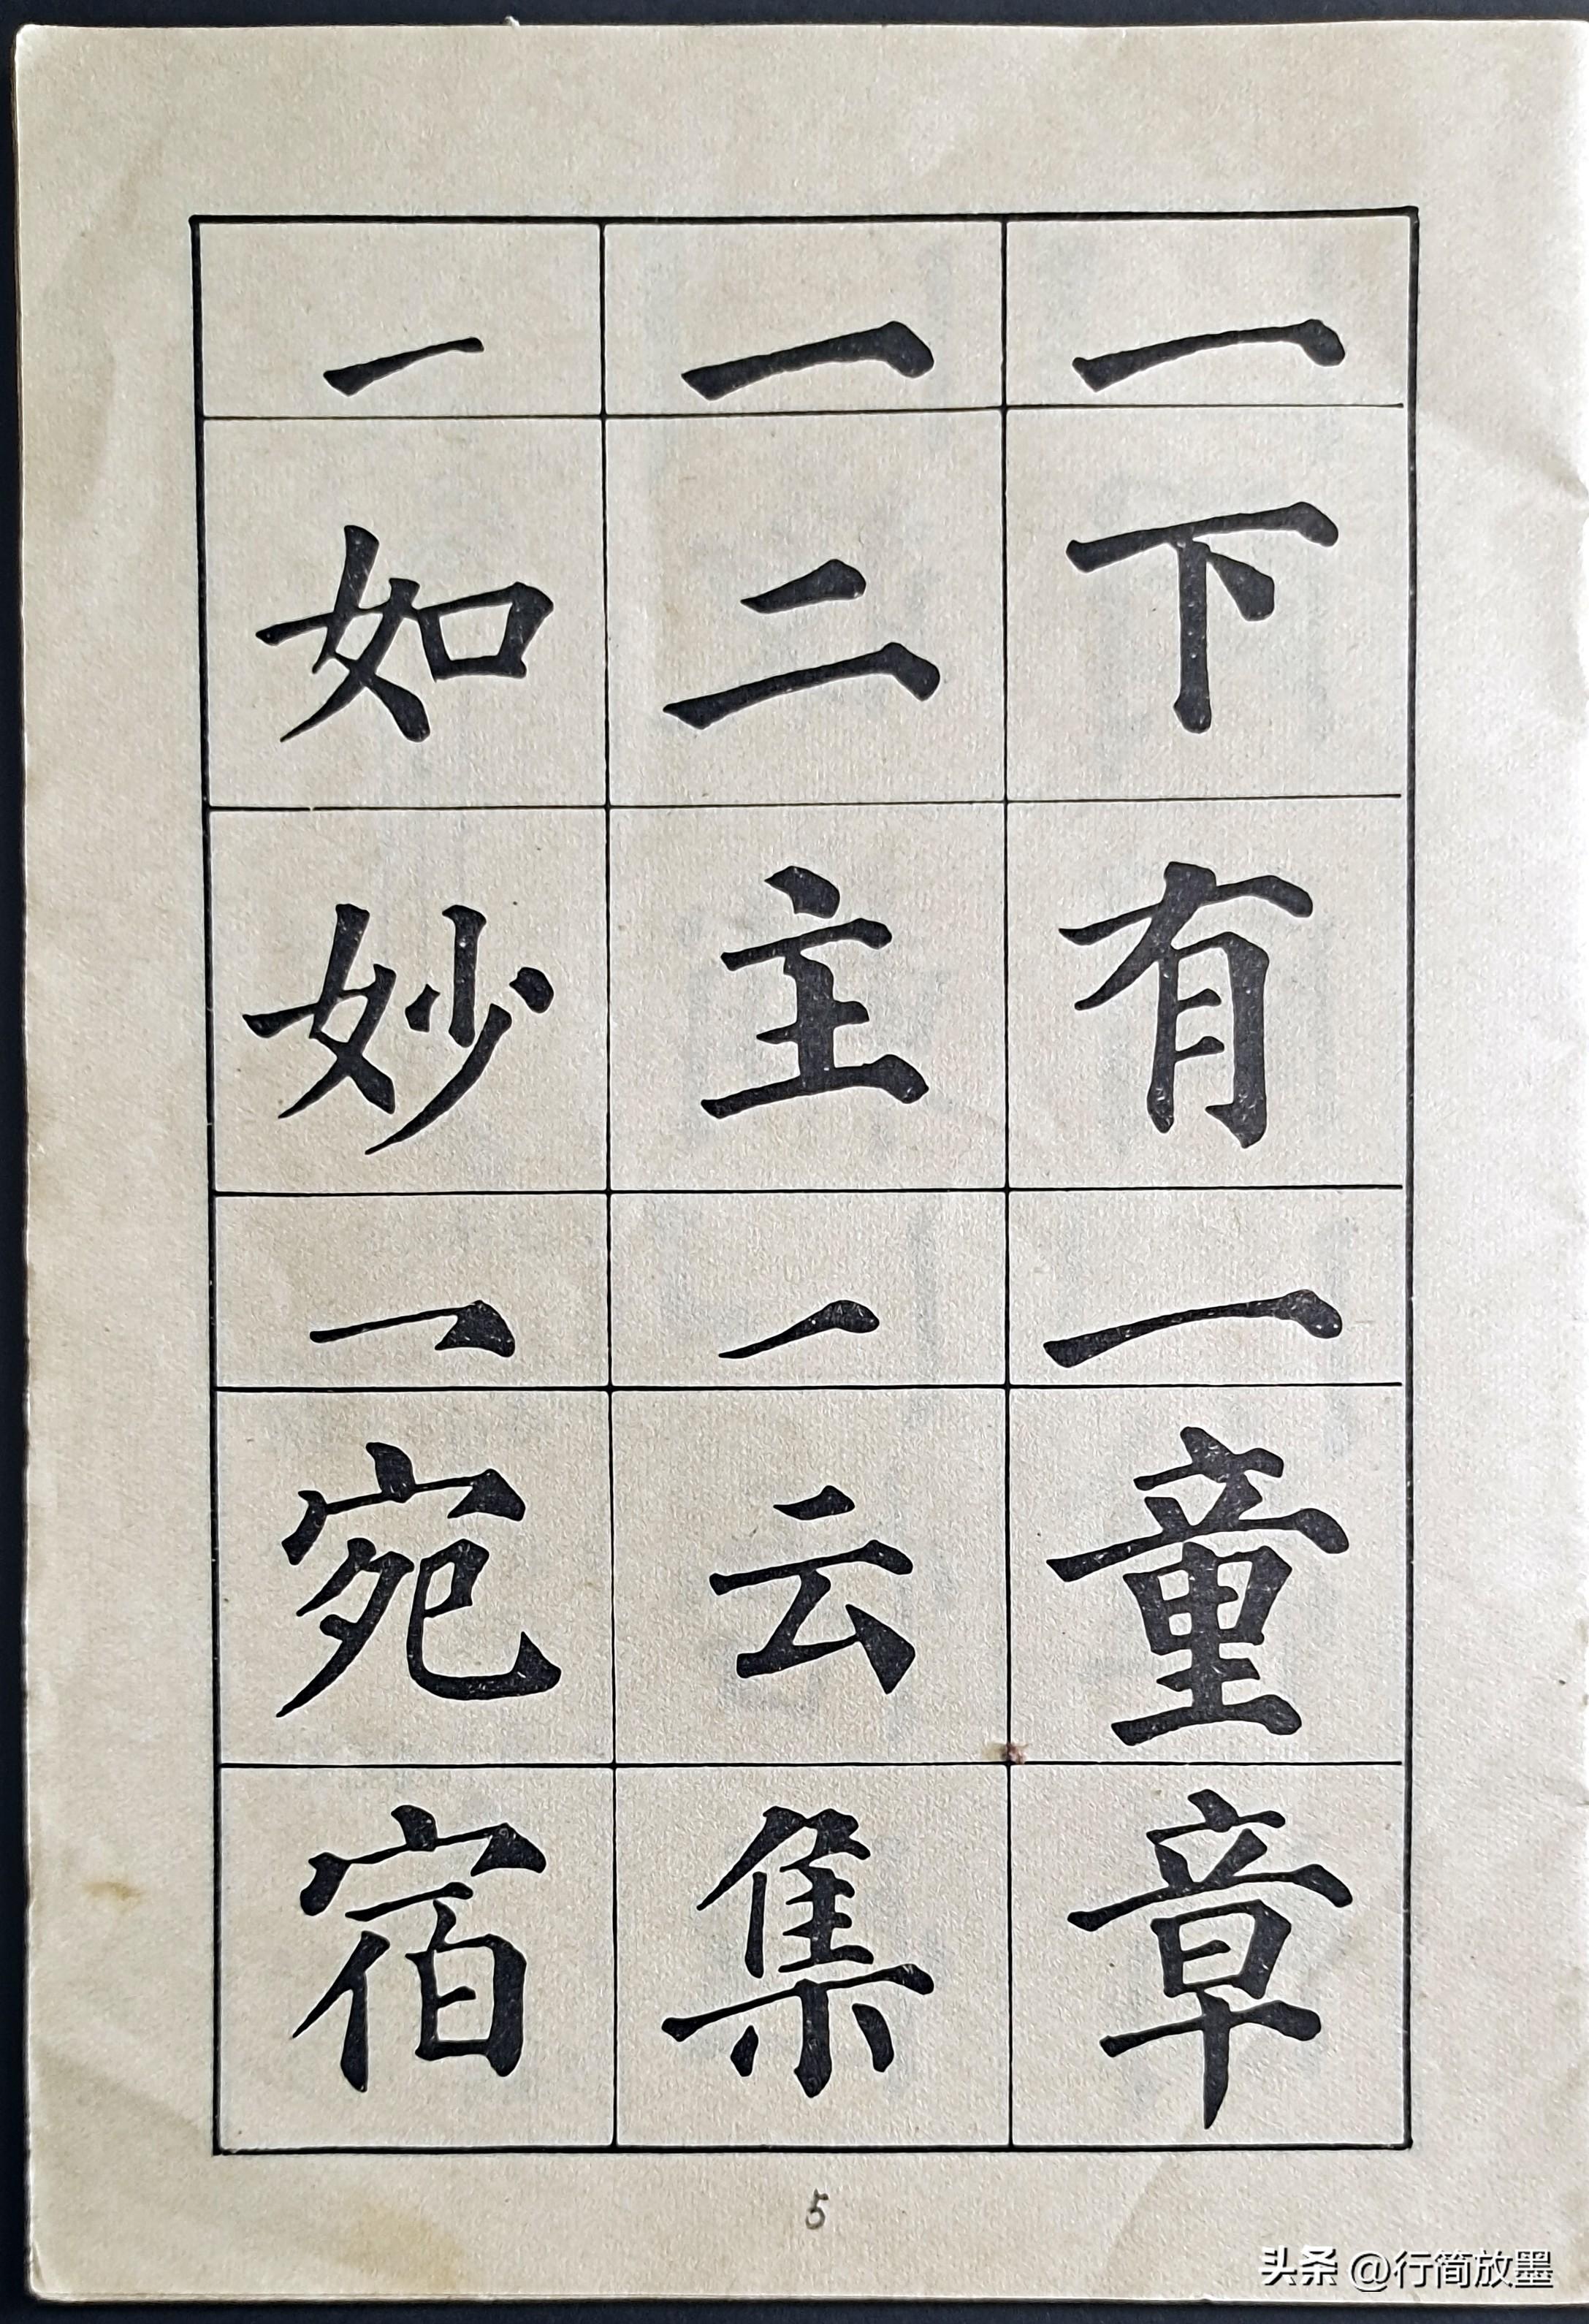 一下有一童章
一二主一云集
一如妙一宛宿
5
头条 @行简放墨